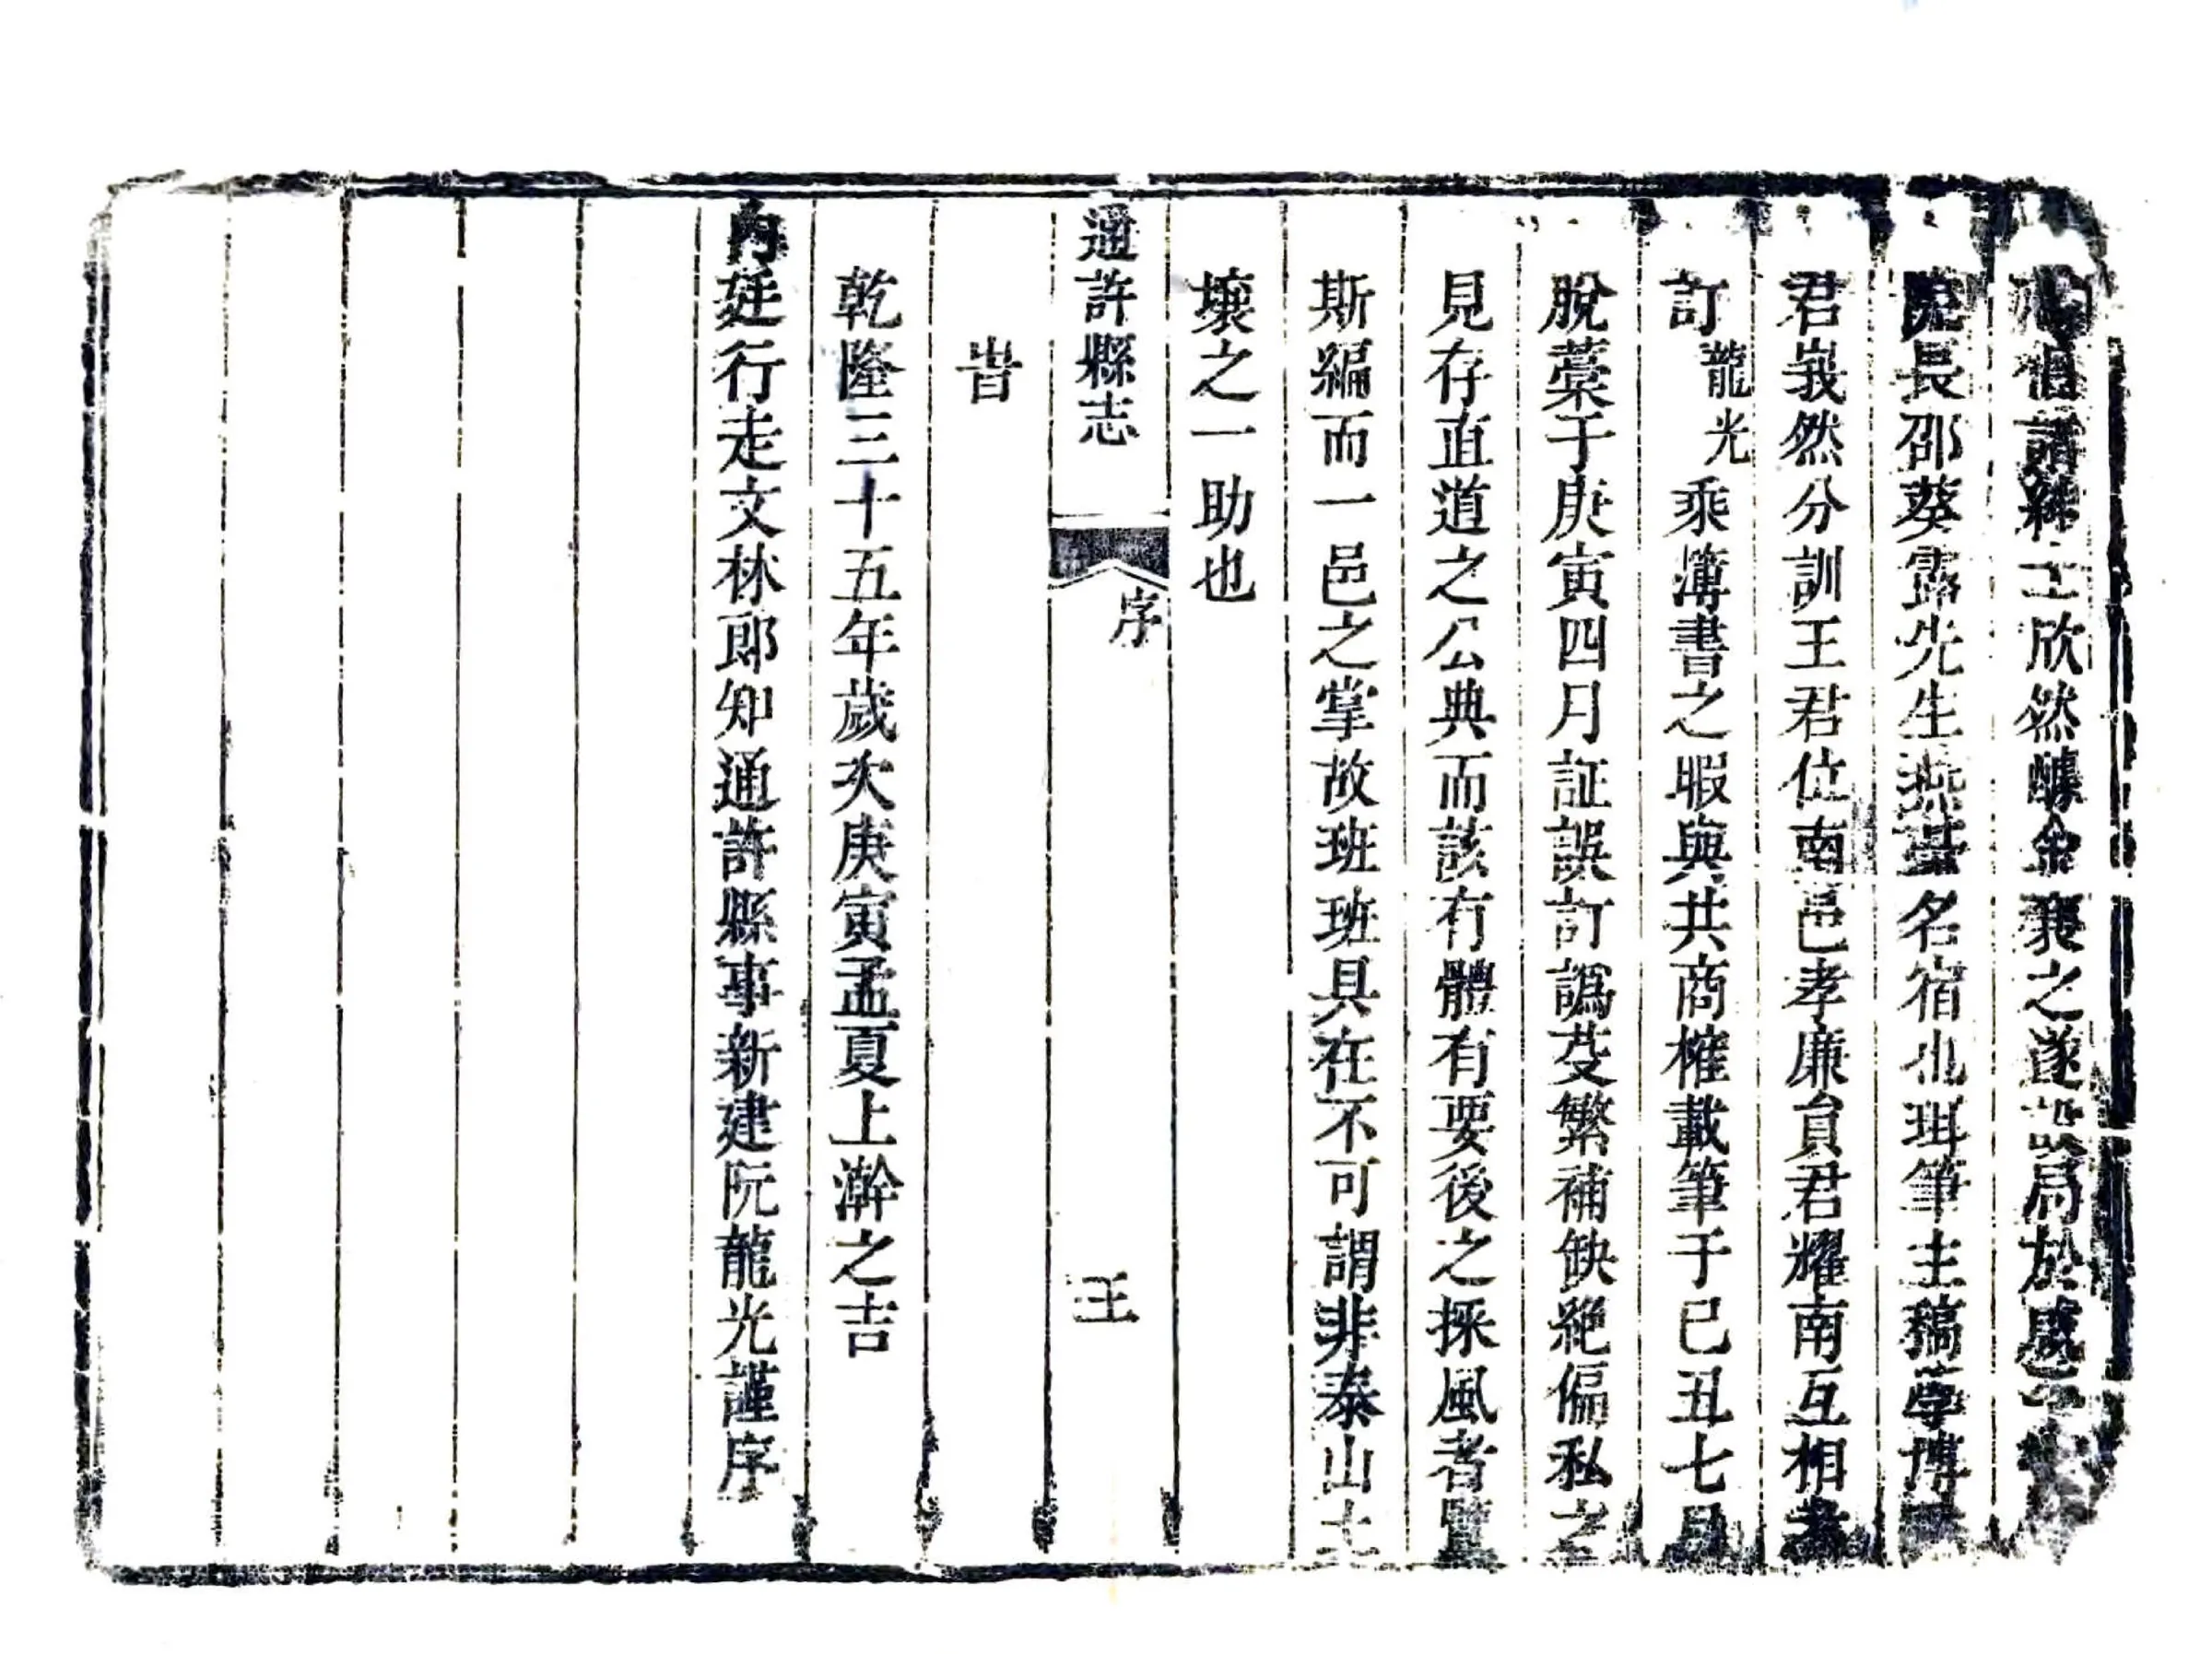 諸紳士欣然醵金襄之遂設局於
院長邵葵露先生燕臺名宿也珥筆主稿學博
君峩然分訓王君位南邑孝廉貟君耀南互相考
訂龍光乘簿書之暇與共商榷載筆于已丑七月
脫藁于庚寅四月証誤訂譌芟繁補缺絕偏私之
見存直道之公典而該有體有要後之採風者覽
斯編而一邑之掌故班班具在不可謂非泰山土
壤之一助也
通許縣志
序
王
旹
乾隆三十五年歲次庚寅孟夏上澣之吉
內廷行走文林郎知通許縣事新建阮龍光謹序